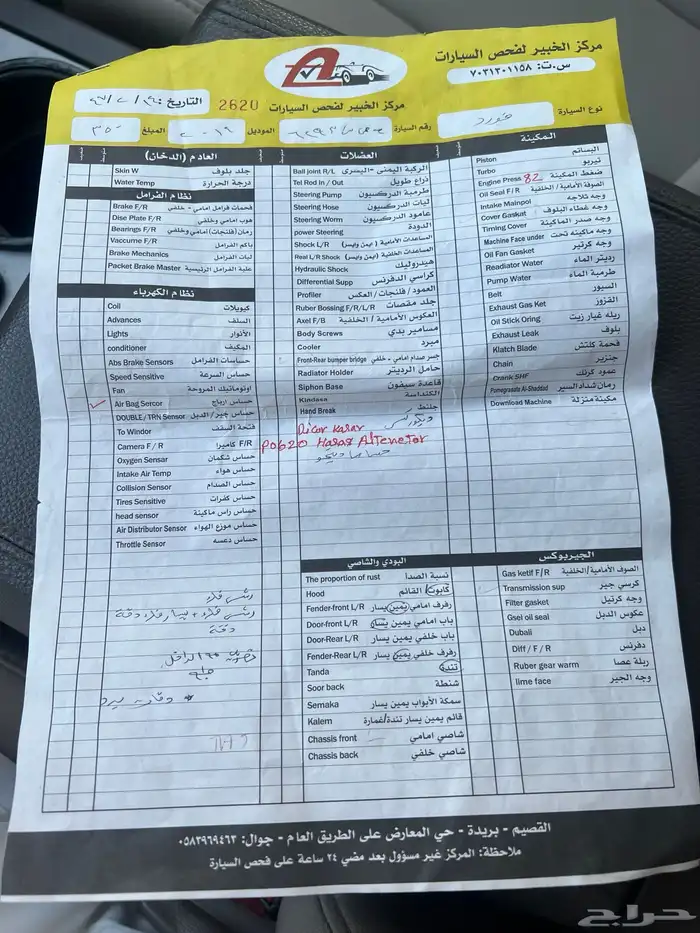 مركز الخبير لفحص السيارات
س.ت: ٧٠٣١٣٠١١٥٨
مركز الخبير لفحص السيارات
2620
التاريخ:
نوع السيارة فورد
رقم السيارة
الموديل ٢٠١٩
المبلغ ٣٥٠
المكينة
Piston البساتم
Turbo تيربو
Engine Press 82 ضغط المكينة
Oil Seal F/R الصوفة الأمامية/الخلفية
Intake Mainpol وجه ثلاجه
Cover Gaskat وجه غطاء البلوف
Timing Cover وجه صدر الماكينة
Machine Face under وجه ماكينه تحت
Oil Fan Gasket وجه كرتير
Readiator Water رديتر الماء
Pump Water طرمبة الماء
Belt السيور
Exhaust Gas Ket القزوز
Oil Stick Oring ربله غيار زيت
Exhaust Leak بلوف
Klatch Blade فحمة كلتش
Chain جنزير
Crank SHF عمود كرنك
Pomegranate Al-Shaddad رمان شداد السير
Download Machine مكينة منزلة
العضلات
Ball joint R/L الركبة اليمنى -اليسرى
Tel Rod In / Out ذراع طويل
Steering Pump طرمبة الدركسيون
Steering Hose ليات الدركسيون
Steering Worm عامود الدركسيون
power Steering الدودة
Shock L/R المساعدات الأمامية (ايمن وايسر)
Real L/R Shock المساعدات الخلفية (ايمن وايسر)
Hydraulic Shock هيدروليك
Differential Supp كراسي الدفرنس
Profiler العمود / فلنجات / العكس
Ruber Bossing F/R/L/R جلد مقصات
Axel F/B العكوس الأمامية / الخلفية
Body Screws مسامير بدي
Cooler مبرد
Front-Rear bumper bridge جسر صدام امامي - خلفي
Radiator Holder حامل الرديتر
Siphon Base قاعدة سيفون
Kindasa الكنداسة
Hand Break جلنط
P0620
العادم (الدخان)
Skin W جلد بلوف
Water Temp درجة الحرارة
نظام الفرامل
Brake F/R فحمات فرامل امامي - خلفي
Dise Plate F/R هوب امامي وخلفي
Bearings F/R رمان (فلنجات) امامي وخلفي
Vaccume F/R باكم الفرامل
Brake Mechanics ليات الفرامل
Packet Brake Master علبة الفرامل الرئيسية
نظام الكهرباء
Coil كويلات
Advances السلف
Lights الأنوار
conditioner المكيف
Abs Brake Sensors حساسات الفرامل
Speed Sensitive حساس السرعة
Fan اوتوماتيك المروحة
Air Bag Sercor حساس ارباج
DOUBLE / TRN Sensor حساس جير / الدبل
To Windor فتحة السقف
Camera F / R كاميرا F/R
Oxygen Sensar حساس شكمان
Intake Air Temp حساس هواء
Collision Sensor حساس الصدام
Tires Sensitive حساس كفرات
head sensor حساس راس ماكينة
Air Distributor Sensor حساس موزع الهواء
Throttle Sensor حساس دعسه
البودي والشاصي
The proportion of rust نسبة الصدأ
Hood كابوت / القائم
Fender-front L/R رفرف امامي يمين يسار
Door-front L/R باب امامي يمين يسار
Door-Rear L/R باب خلفي يمين يسار
Fender-Rear L/R رفرف خلفي يمين يسار
Tanda تندة
Soor back شنطة
Semaka سمكة الأبواب يمين يسار
Kalem قائم يمين يسار تندة/غمارة
Chassis front شاصي امامي
Chassis back شاصي خلفي
الجيربوكس
Gas ketif F/R الصوف الأمامية/الخلفية
Transmission sup كرسي جير
Filter gasket وجه كرتيل
Gsel oil seal عكوس الدبل
Dubali دبل
Diff / F / R دفرنس
Ruber gear warm ربلة عصا
lime face وجه الجير
القصيم - بريدة - حي المعارض على الطريق العام - جوال: ٠٥٨٣٩٦٩٤٦٣
ملاحظة: المركز غير مسؤول بعد مضي ٢٤ ساعة على فحص السيارة
حراج